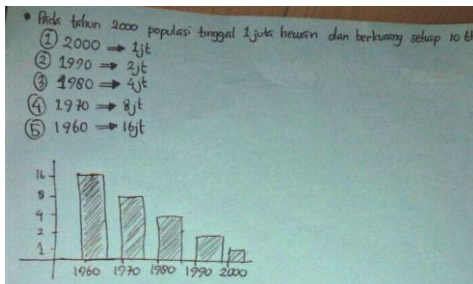 • Pada tahun 2000 populasi tinggal 1 juta hewan dan berkurang setiap 10 th
① 2000 → 1jt
② 1990 → 2jt
③ 1980 → 4jt
④ 1970 → 8jt
⑤ 1960 → 16jt
16
8
4
2
1
1960 1970 1980 1990 2000